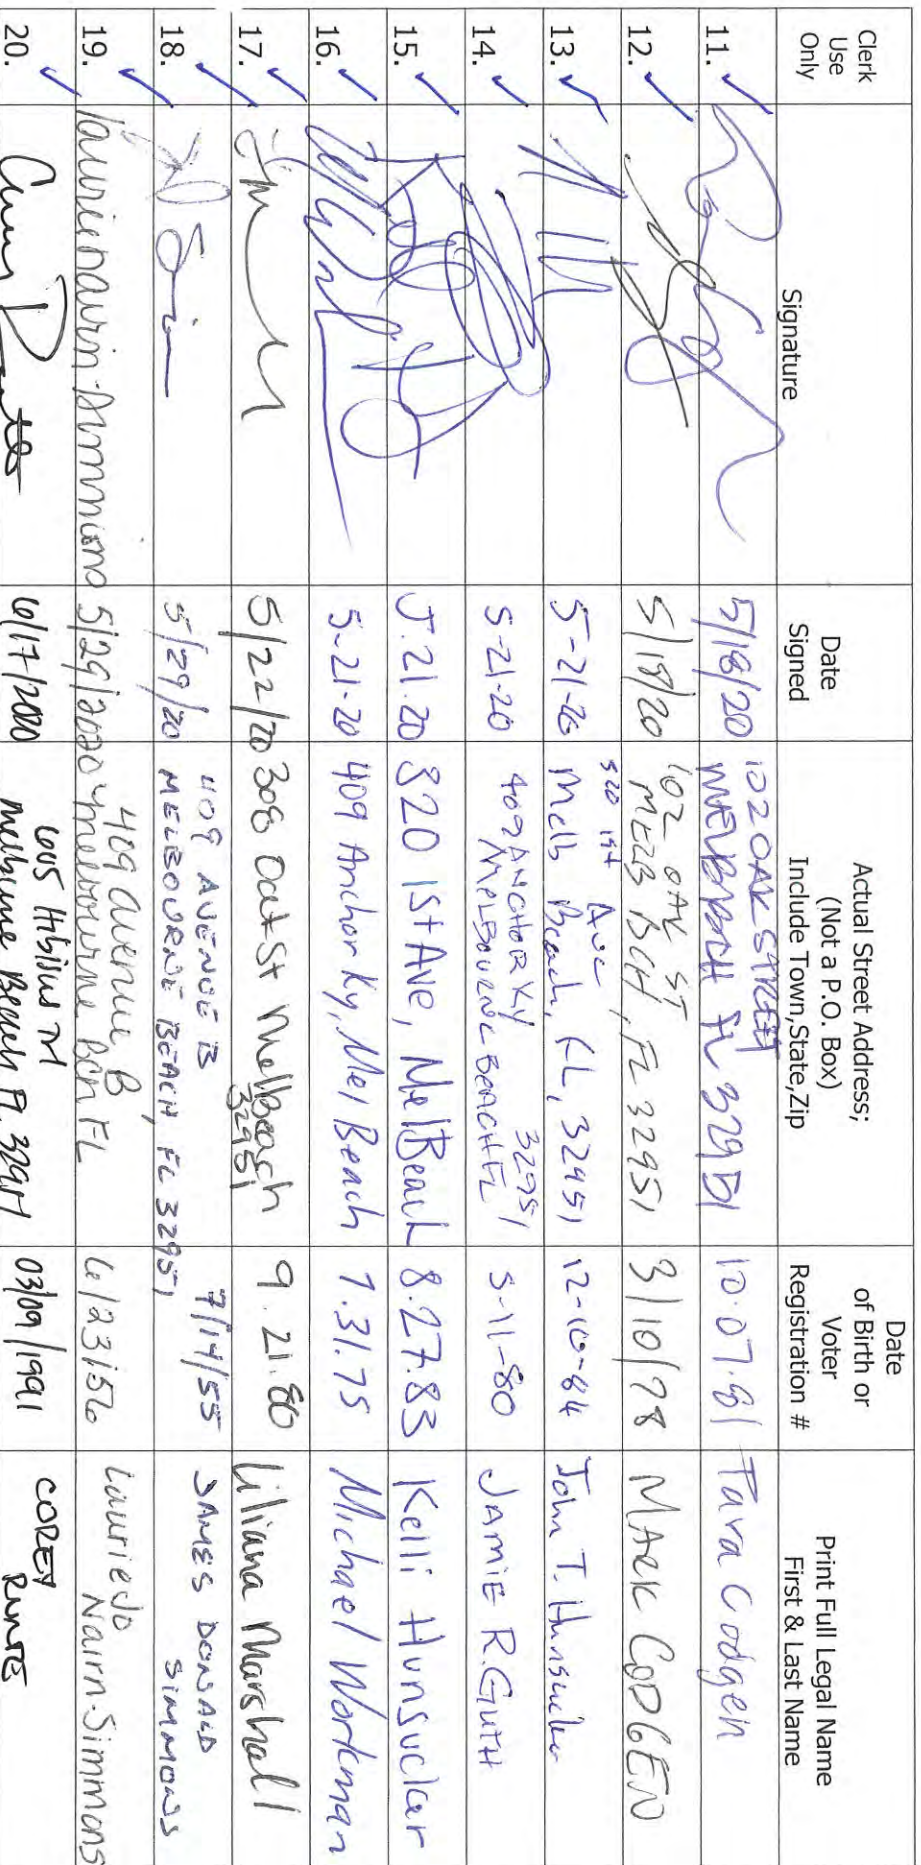 Clerk
Use
Only
Signature
Date
Signed
Actual Street Address;
(Not a P.O. Box)
Include Town,State,Zip
Date
of Birth or
Voter
Registration #
Print Full Legal Name
First & Last Name
11. 5/18/20 102 OAK STREET
FL 32951 10.07.81 Tara Codgen
12. 5/18/20 102 OAK ST
MELB BCH, FL 32951 3/10/78 MARK CODGEN
13. 5-21-20 320 1st Ave
Melb Beach, FL, 32951 12-10-84 John T. Hunsucker
14. 5-21-20 402 ANCHOR KY
MELBOURNE BEACH FL 32951 5-11-80 JAMIE R. GUTH
15. 5.21.20 320 1st Ave, Mel Beach 8.27.83 Kelli Hunsucker
16. 5-21-20 409 Anchor Ky, Mel Beach 7.31.75 Michael Workman
17. 5/22/20 308 Oak St Melbeach
32951 9.21.80 Liliana Marshall
18. 5/29/20 409 AVENUE B
MELBOURNE BEACH, FL 32951 7/14/55 JAMES DONALD
SIMMONS
19. 5/29/2020 409 avenue B
melbourne Bch FL 6/23/56 Laurie Jo
Nairn-Simmons
20. 6/17/2020 605
Melbourne Beach FL 32951 03/09/1991 COREY